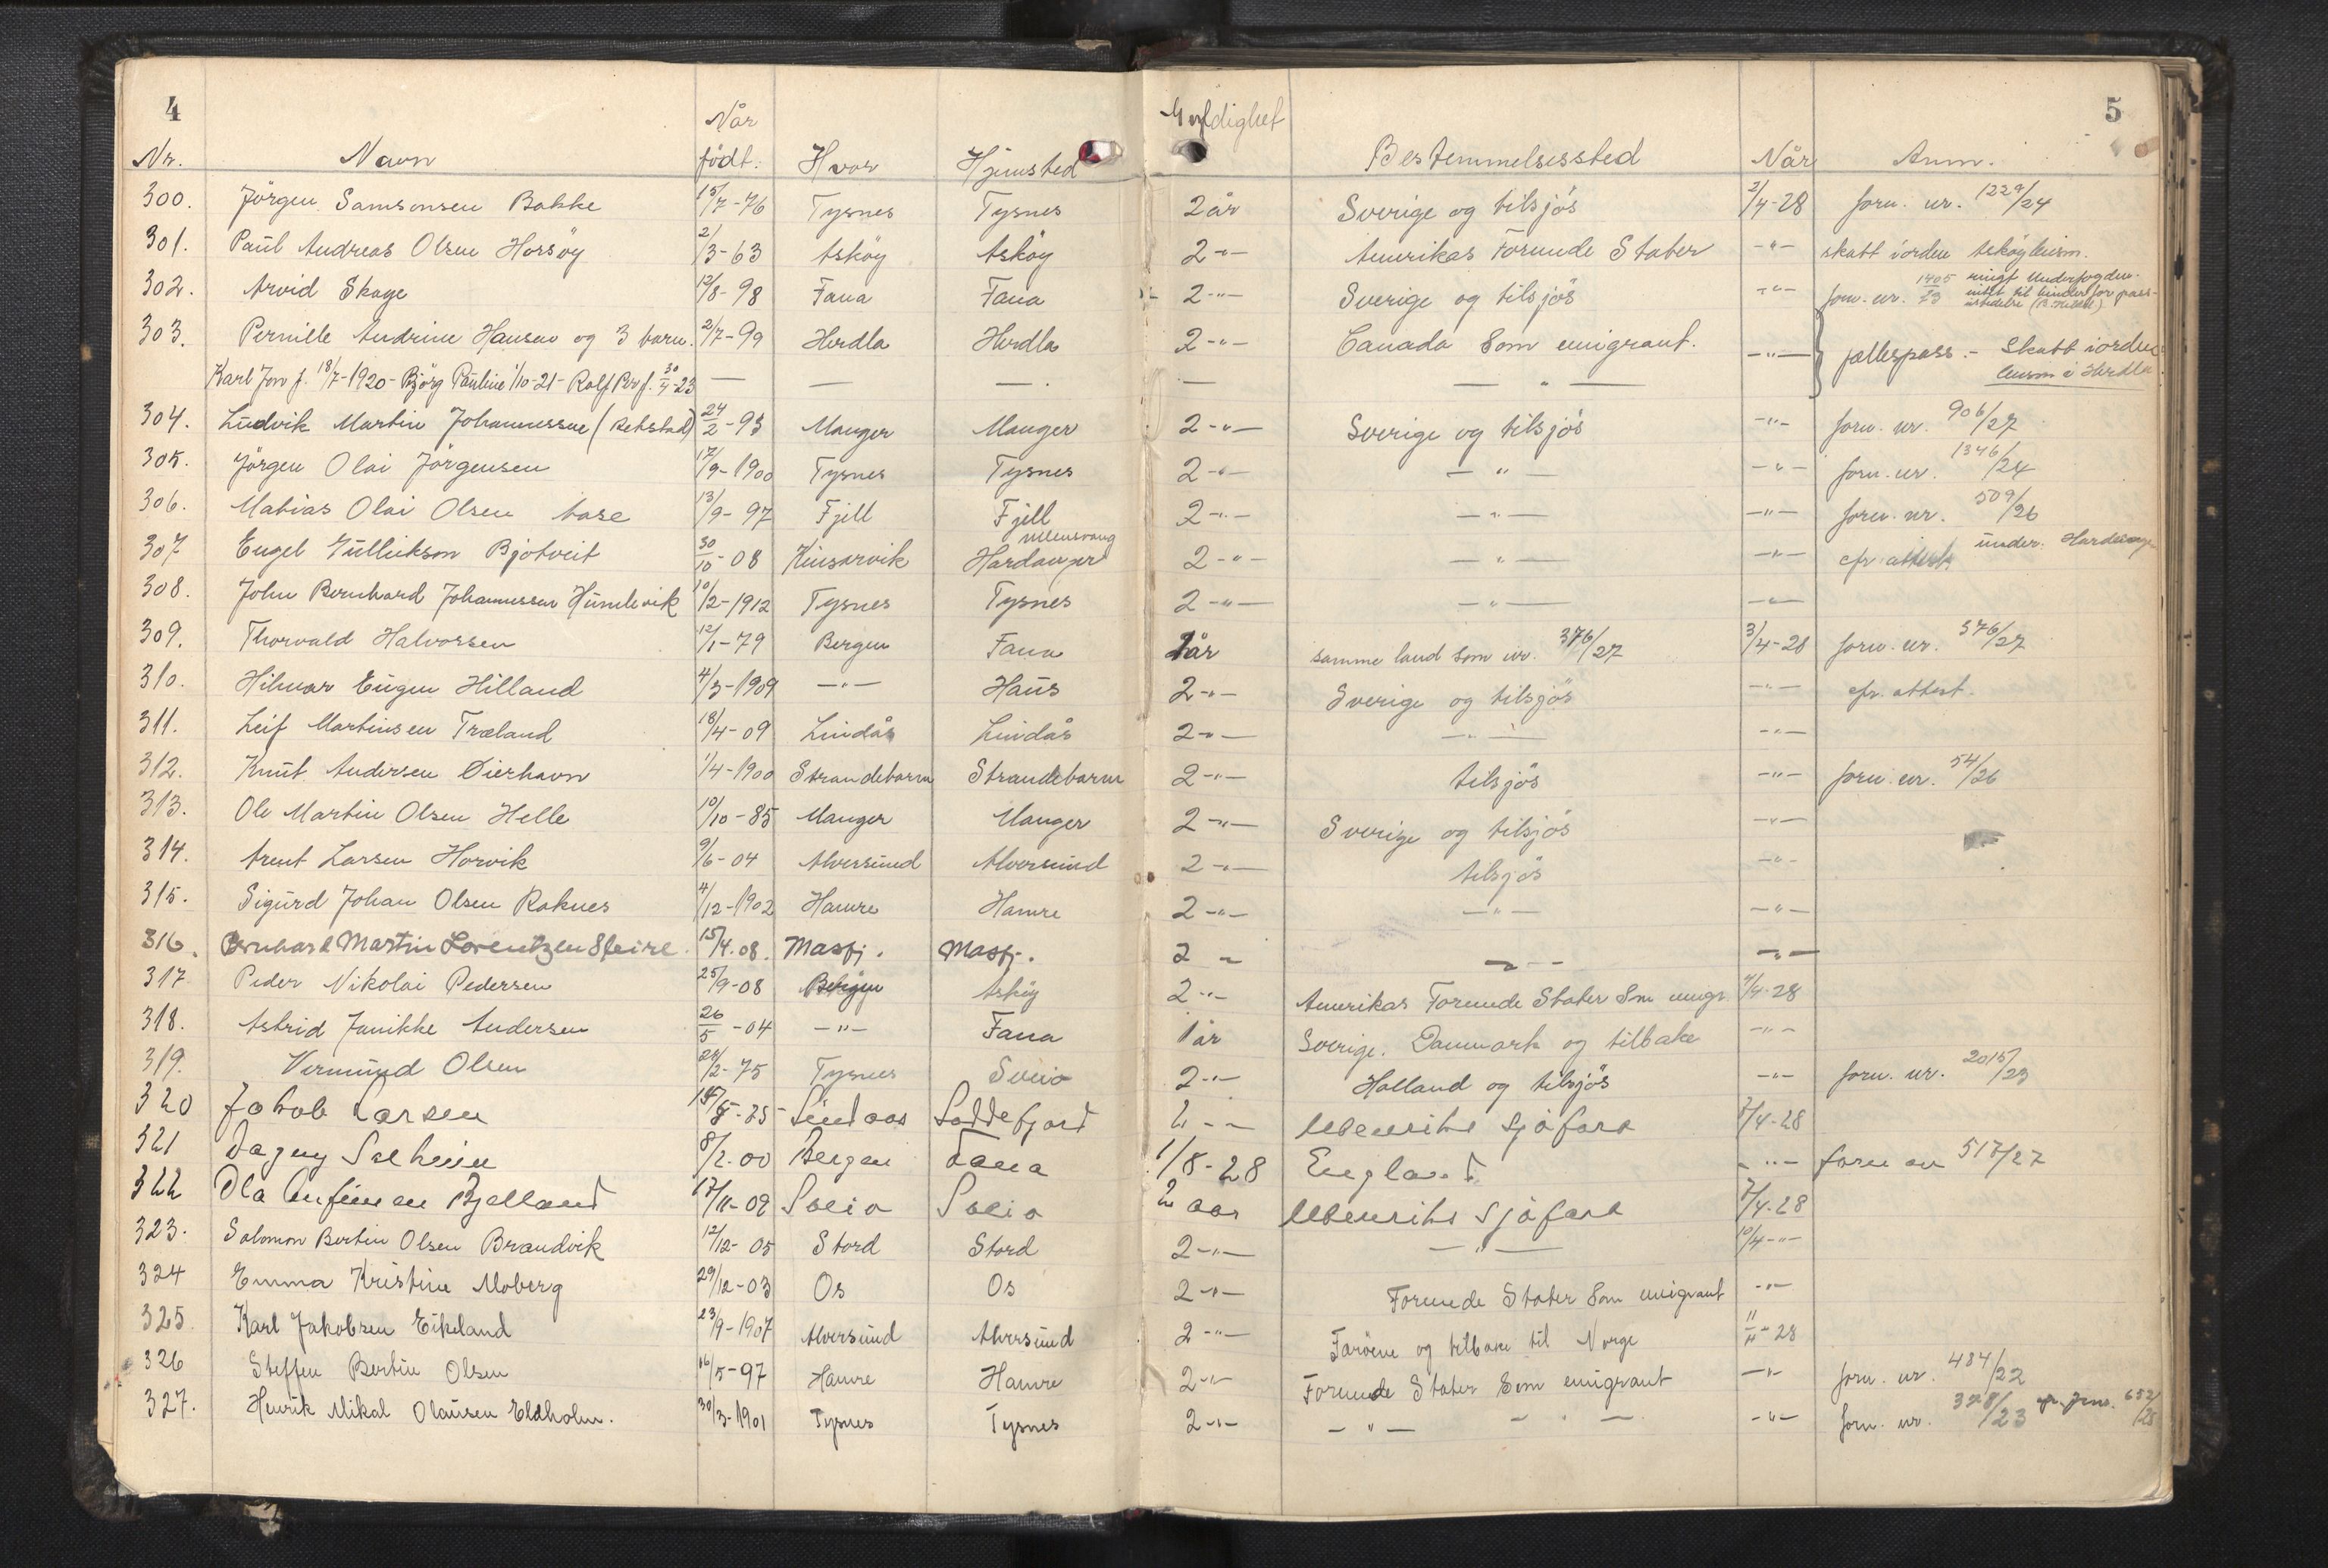 4
5
Nr. Navn Når født. Hvor Hjemsted Gyldighet Bestemmelsessted Når Anm.
300. Jörgen Samsonsen Bakke 15/7-76 Tysnes Tysnes 2 år Sverige og tilsjös 2/4-28 forn. nr. 1229/24
301. Paul Andreas Olsen Horsöy 2/3-63 Asköy Asköy 2 -"- Amerikas Forende Stater -"- skatt iorden Asköy
302. Arvid Skage 12/8-98 Fana Fana 2 -"- Sverige og tilsjös -"- forn. nr. 1405/23 intet til hinder for pass-
303. Pernille Andrine Hansen og 3 barn. 2/7-99 Herdla Herdla 2 -"- Canada Som emigrant. -"- } fællespass. - Skatt iorden
Karl Jon f. 18/7-1920 - Bjørg Pauline 1/10-21 - Rolf Per f. 30/4-23 — — — — — " — i Herdla
304. Ludvik Martin Johannessen 24/2-93 Manger Manger 2 -"- Sverige og tilsjös -"- forn. nr. 906/27
305. Jörgen Olai Jörgensen 17/9-1900 Tysnes Tysnes 2 -"- — " — -"- forn. nr. 1346/24
306. Matias Olai Olsen 13/9-97 Fjell Fjell 2 -"- — " — -"- forn. nr. 509/26
307 Engel Gullikson Bjotveit 30/10-08 Kinsarvik Ullensvang Hardanger 2 -"- — " — -"- cfr. attest. under. Hardanger
308. John Bernhard Johannessen Humlevik 10/2-1912 Tysnes Tysnes 2 -"- — " — -"-
309. Thorvald Halvorsen 12/1-79 Bergen Fana 1 år samme land som nr. 376/27 3/4-28 forn. nr. 376/27
310. Hilmar Eugen Hilland 4/3-1909 -"- Haus 2 -"- Sverige og tilsjös -"- cfr. attest.
311. Leif Martinsen Træland 18/4-09 Lindås Lindås 2 -"- — " — -"-
312. Knut Andersen Øierhavn 1/4-1900 Strandebarm Strandebarm 2 -"- tilsjös -"- forn. nr. 54/26
313. Ole Martin Olsen Helle 10/10-85 Manger Manger 2 -"- Sverige og tilsjös -"-
314. Arent Larsen Horvik 9/6-04 Alversund Alversund 2 -"- tilsjös -"-
315. Sigurd Johan Olsen Roknes 4/12-1902 Hamre Hamre 2 -"- — " — -"-
316. Bernhard Martin Lorentzen Steire 15/4.08. Masfj. Masfj. 2 " — " — -"-
317 Peder Nikolai Pedersen 25/9-08 Bergen Asköy 2 -"- Amerikas Forende Stater Som emigr. 4/4-28
318. Astrid Janikke Andersen 26/5-04 -"- Fana 1 år Sverige. Danmark og tilbake -"-
319. Vermund Olsen 24/2-75 Tysnes Sveio 2 -"- Holland og tilsjös -"- forn. nr. 2015/23
320 Jakob Larsen Lindaas Loddefjord 2 - - Utenriks sjøfart 7/4-28
321 Dagny Solheim 8/2-00 Bergen Fana 1/8-28 England -"- forn nr 517/27
322 Ola Anfinsen Bjelland 17/11-09 Sveio Sveio 2 aar Utenriks sjøfart 7/4-28
323. Salomon Bertin Olsen Brandvik 12/12-05 Stord Stord 2 -"- — " — 10/4-"-
324 Emma Kristine Moberg 29/12-03 Os Os 2 -"- Forende Stater Som emigrant -"-
325. Karl Jakobsen Eikeland 23/9-1907 Alversund Alversund 2 -"- Færöene og tilbake til Norge 11/4-28
326 Steffen Bertin Olsen 16/5-97 Hamre Hamre 2 -"- Forende Stater Som emigrant -"- forn. nr. 484/22
327. Henrik Mikal Olausen Eldholm. 30/3-1901 Tysnes Tysnes 2 -"- — " — — " — -"- forn. nr. 328/23 cfr. 652/28